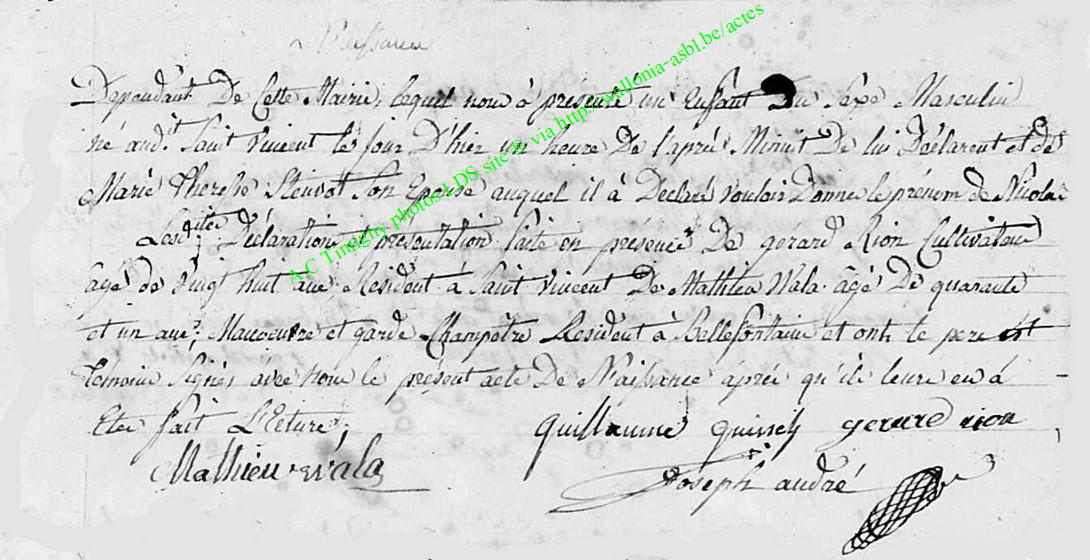 Naissance
Dependant De Cette Mairie, lequel nous à présenté un Enffant Du Sexe Masculin
né aud.t Saint vincent le jour D'hier un heure De l'apré Minuit De lui Déclarent et de
Marie Therese Son Epouse auquel il à Declaré vouloir Donner le prénom de Nicolas
Lesdites Déclaration et presentation faite en présence De gerard Rion Cultivateur
agé de vingt huit ans, Résident à Saint vincent De Mathieu Wala agé De quarante
et un ans, Maneuvre et garde Champètre Resident à Bellefontaine et ont le pere et
temoins Signés avec nous le présent acte De Naissance aprés qu'ils leurs en à
Eter fait L'Ecture.
guillaume gerard rion
Mathieu Wala Joseph andré
A.C Tintigny photos LDS site @ via http://wallonia-asbl.be/actes